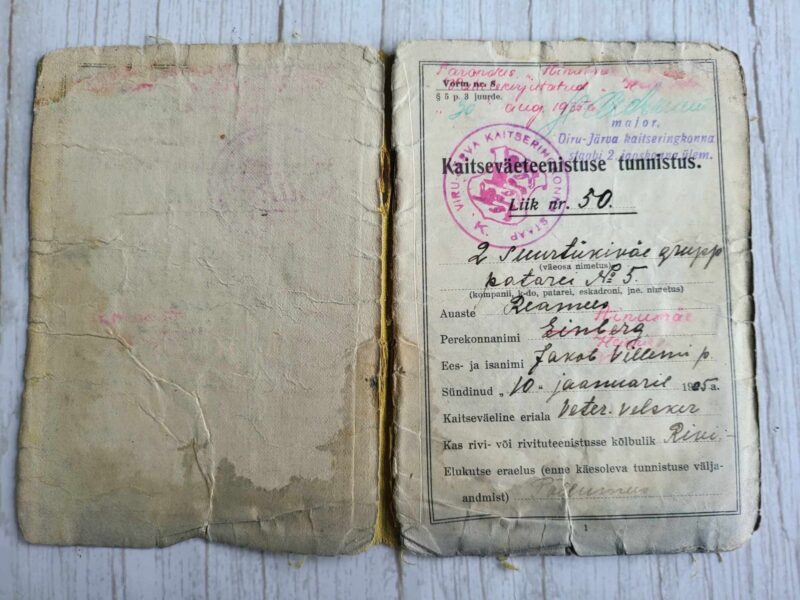 Parandus "Ainumäe
Vorm nr. 8.
§ 5 p. 3 juurde.
30 aug 193
major.
Viru-Järva kaitseringkonna
staabi 2. jaoskonna ülem.
Kaitseväeteenistuse tunnistus.
VIRU-JÄRVA KAITSERINGKONNA STAAP
Liik nr. 50.
2 Suurtükiväe grupp
(väeosa nimetus)
patarei № 5.
(kompanii, k-do, patarei, eskadroni, jne. nimetus)
Auaste Reamees
Ainumäe
Perekonnanimi Einberg
Ees- ja isanimi Jakob Villemi p.
Sündinud „10" jaanuaril 1905 a.
Kaitseväeline eriala Veter. velsker
Kas rivi- või rivituteenistusse kõlbulik Rivi.-
Elukutse eraelus (enne käesoleva tunnistuse välja-
andmist) Põllumees
1